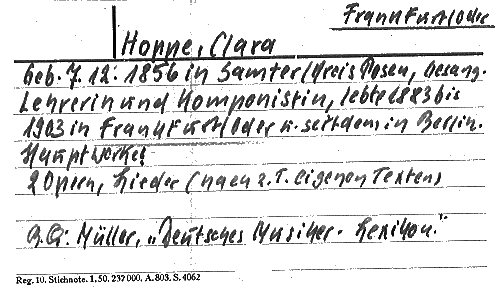 Frankfurt/Oder
Hoppe, Clara
Geb. 7. 12. 1856 in Samter/Kreis Posen, Gesang-
Lehrerin und Komponistin, lebte 1883 bis
1903 in Frankfurt/Oder u. seitdem in Berlin.
Hauptwerke:
2 Opern, Lieder (nach z. T. eigenen Texten)
Müller, „Deutsches Musiker-Lexikon."
Reg. 10. Stichnote. 1. 50. 237 000. A. 803. S. 4062